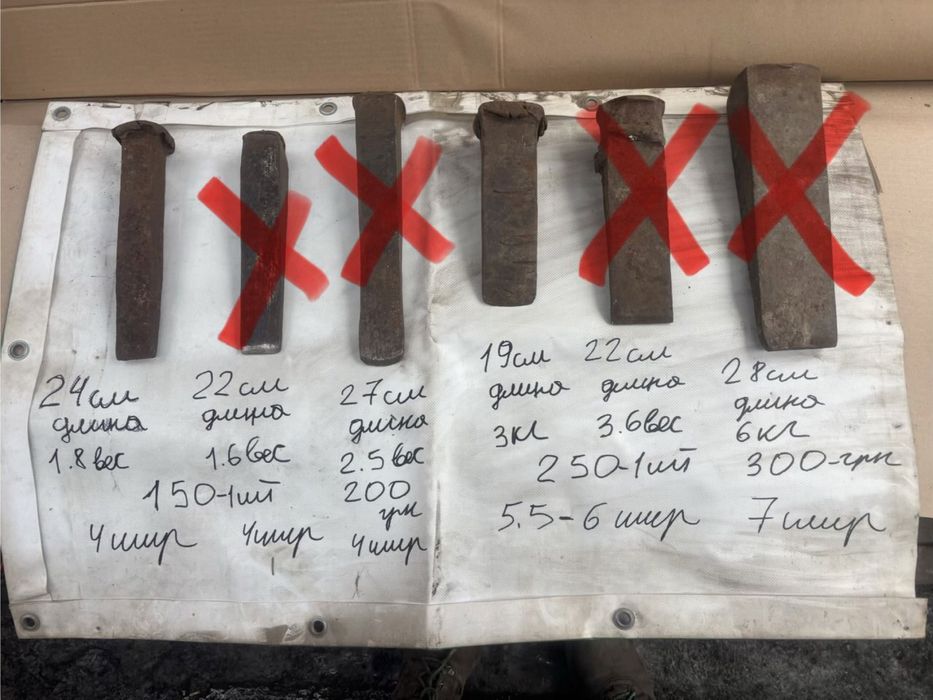 24см
длина
1.8 вес
22см
длина
1.6 вес
150-1шт
27см
длина
2.5 вес
200
грн
4 шир
4 шир
4 шир
19см
длина
3кг
22см
длина
3.6 вес
250-1шт
5.5-6 шир
28см
длина
6кг
300-грн
7 шир